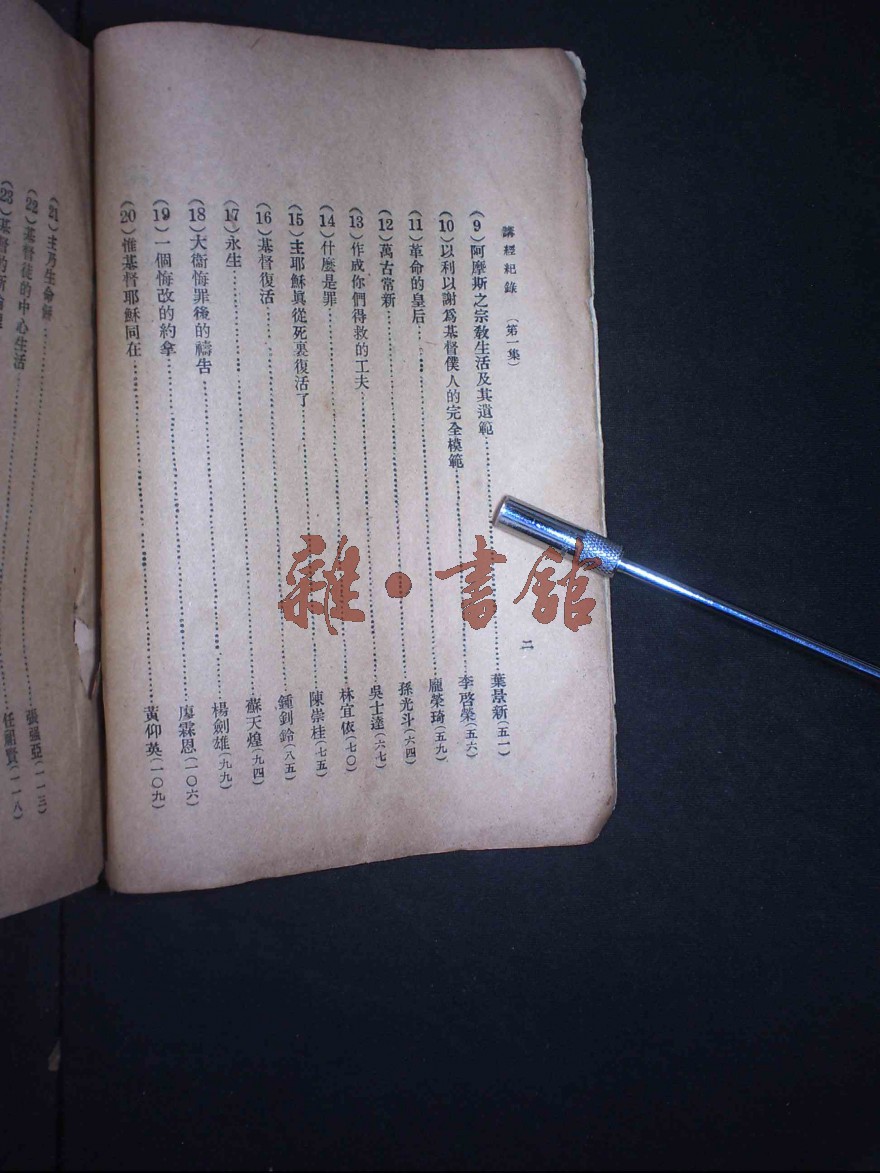 講經紀錄 （第一集） 二
（9）阿摩斯之宗教生活及其遺範……葉景新（五一）
（10）以利以謝爲基督僕人的完全模範……李啓榮（五六）
（11）革命的皇后……龐榮琦（五九）
（12）萬古常新……孫光斗（六四）
（13）作成你們得救的工夫……吳士達（六七）
（14）什麽是罪……林宜依（七〇）
（15）主耶穌眞從死裏復活了……陳崇桂（七五）
（16）基督復活……鍾釗鈴（八五）
（17）永生……蘇天煌（九四）
（18）大衞悔罪後的禱告……楊劍雄（九九）
（19）一個悔改的約拿……廖霖恩（一〇六）
（20）惟基督耶穌同在……黃仰英（一〇九）
（21）主乃生命餅……張强亞（一一三）
（22）基督徒的中心生活……任賢（一一八）
（23）基督的新
雜·書館